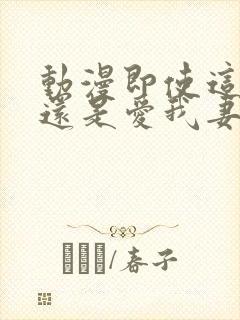 動漫即使這
還是愛我妻
/春子